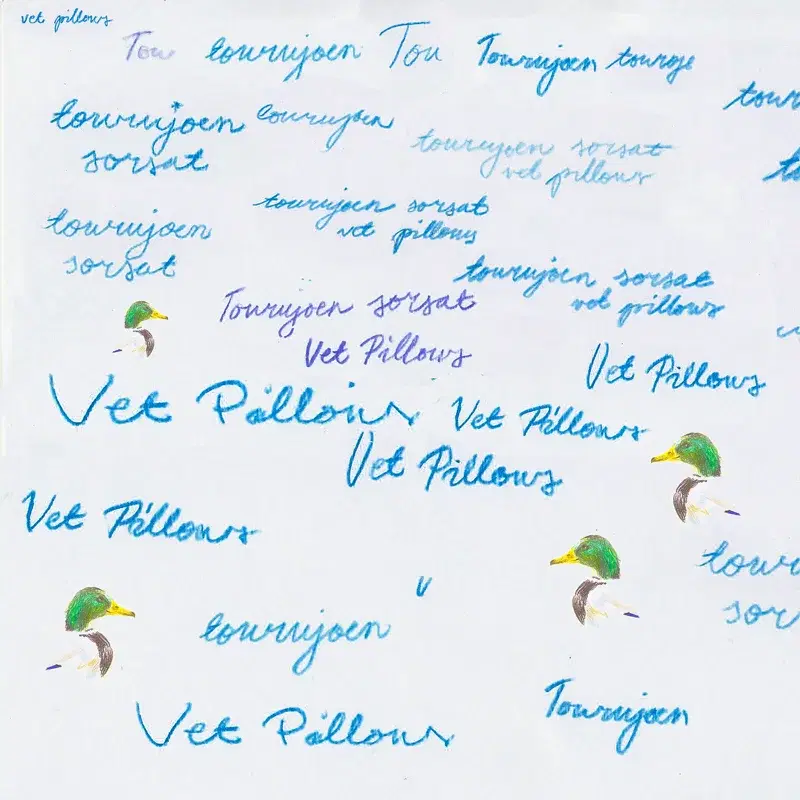 vet pillows
Tou touvujoen Tou Touvujoen touvoje
touv
touvujoen touvujoen
sorsat
touvujoen sorsat
vet pillows
touvujoen sorsat
vet pillows
touvujoen
sorsat
touvujoen sorsat
vet pillows
Touvujoen sorsat
Vet Pillows
Vet Pillows
Vet Pillows Vet Pillows
Vet Pillows
Vet Pillows
touv
sor
v
touvujoen
Touvujoen
Vet Pillows